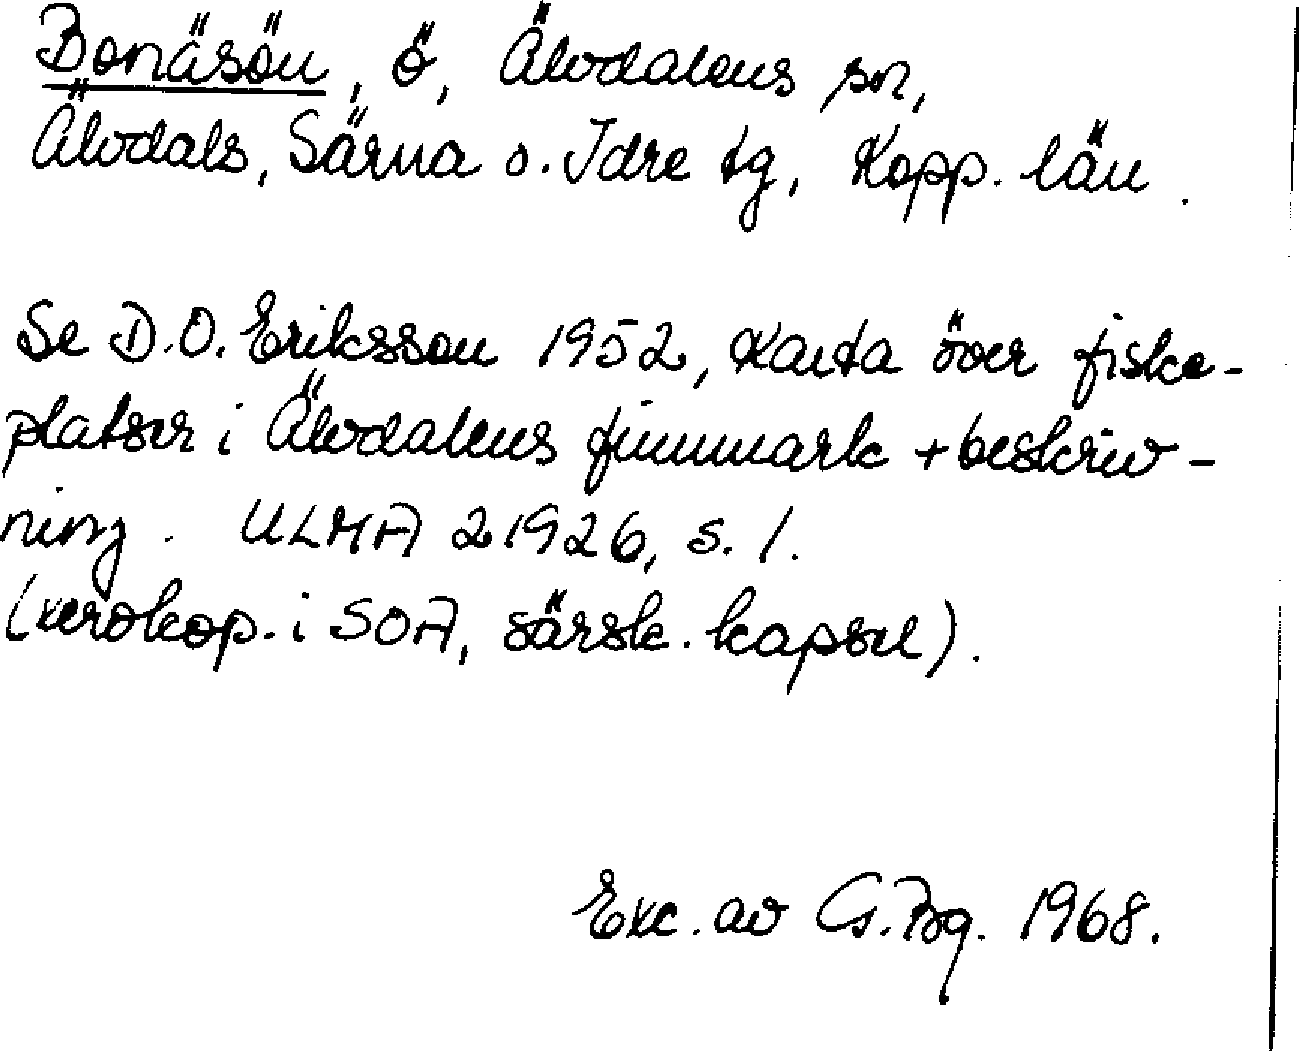 Bonäsön, ö, Älvdalens sn,
Älvdals, Särna o. Idre tg, Kopp. län.
Se D.O. Eriksson 1952, Karta över fiske-
platser i Älvdalens finnmark + beskriv-
ning. ULMA 21926, s. 1.
(xerokop. i SOA, särsk. kapsel).
Exc. av G. Bg. 1968.